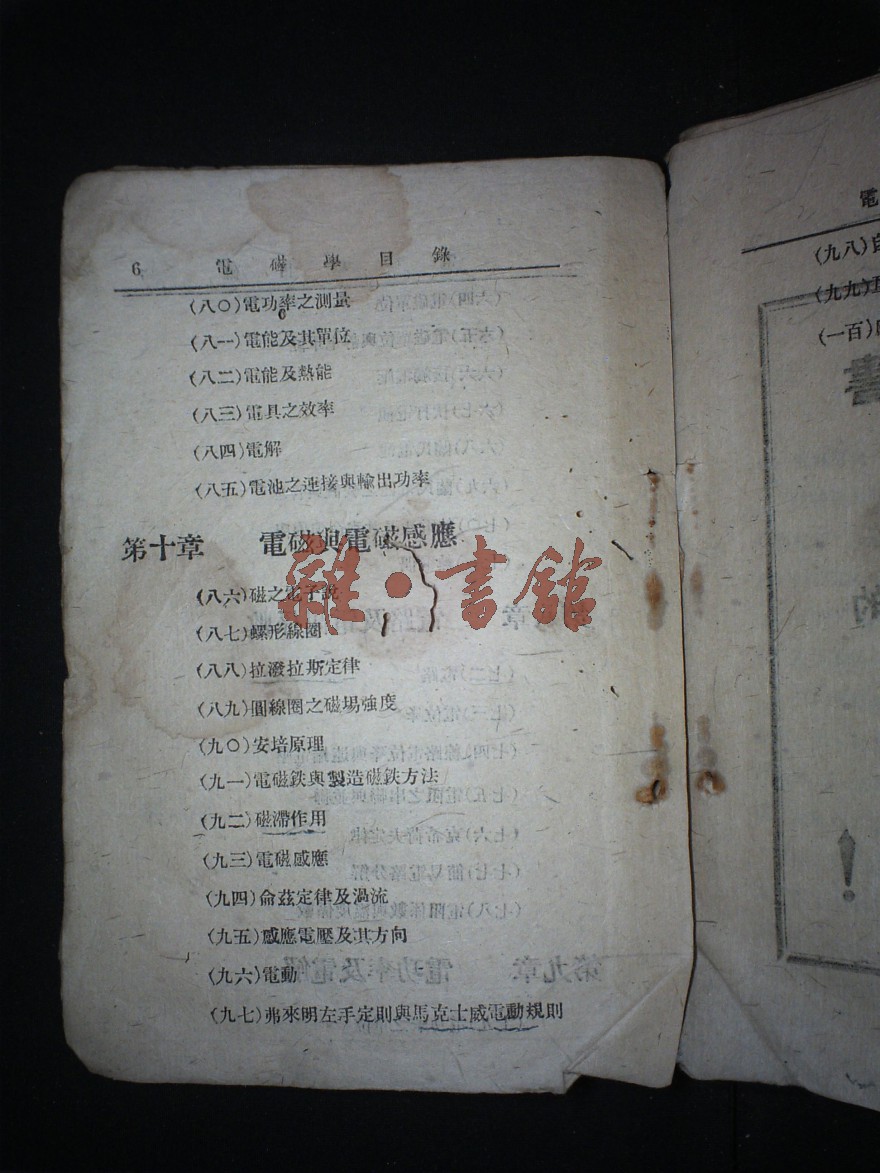 6 電磁學目錄
(八〇)電功率之測量
(八一)電能及其單位
(八二)電能及熱能
(八三)電具之效率
(八四)電解
(八五)電池之連接與輸出功率
第十章 電磁與電磁感應
(八六)磁之電子說
(八七)螺形線圈
(八八)拉潑拉斯定律
(八九)圓線圈之磁場強度
(九〇)安培原理
(九一)電磁鉄與製造磁鉄方法
(九二)磁滯作用
(九三)電磁感應
(九四)俞茲定律及渦流
(九五)感應電壓及其方向
(九六)電動
(九七)弗來明左手定則與馬克士威電動規則
雜·書館
電
(九八)自
(九九)互
(一百)
書
的
!